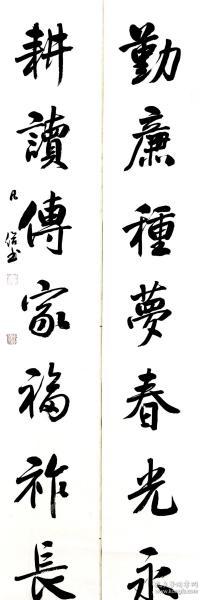 勤廉種夢春光永
耕讀傳家福祚長